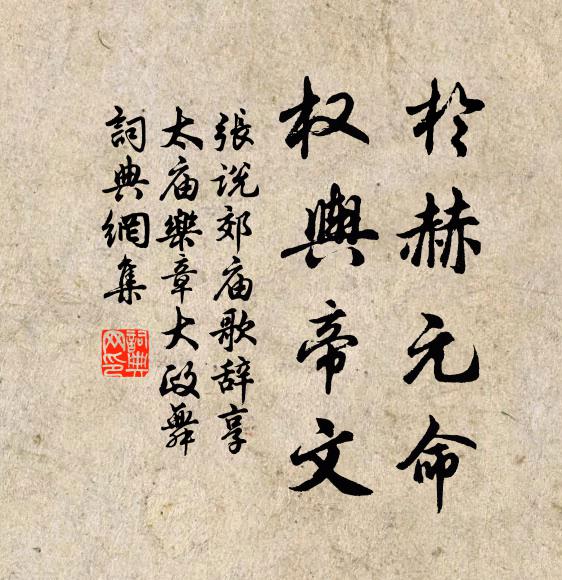 於赫元命
权輿帝文
張说郊庙歌辞享
太庙樂章大政舞
詞典網集
詞典网印